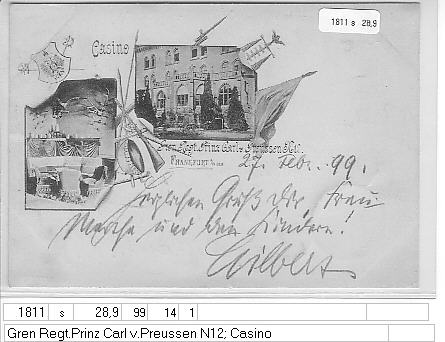 1811 s 28,9
Casino
Gren. Regt. Prinz Carl v. Preussen
FRANKFURT a/
27. Febr. 99.
Herzlichen Gruß Dir, Frau
und den Kindern!
1811 s 28,9 99 14 1
Gren Regt.Prinz Carl v.Preussen N12; Casino